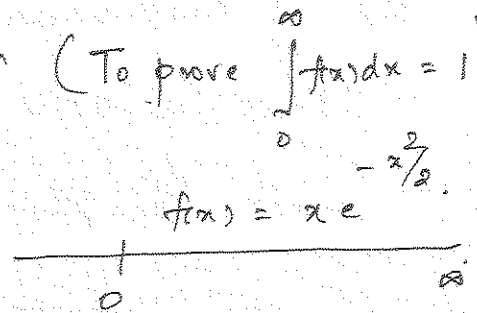 (To prove ∫₀^∞ f(x)dx = 1
f(x) = x e^{-x²/2}.
0 ∞